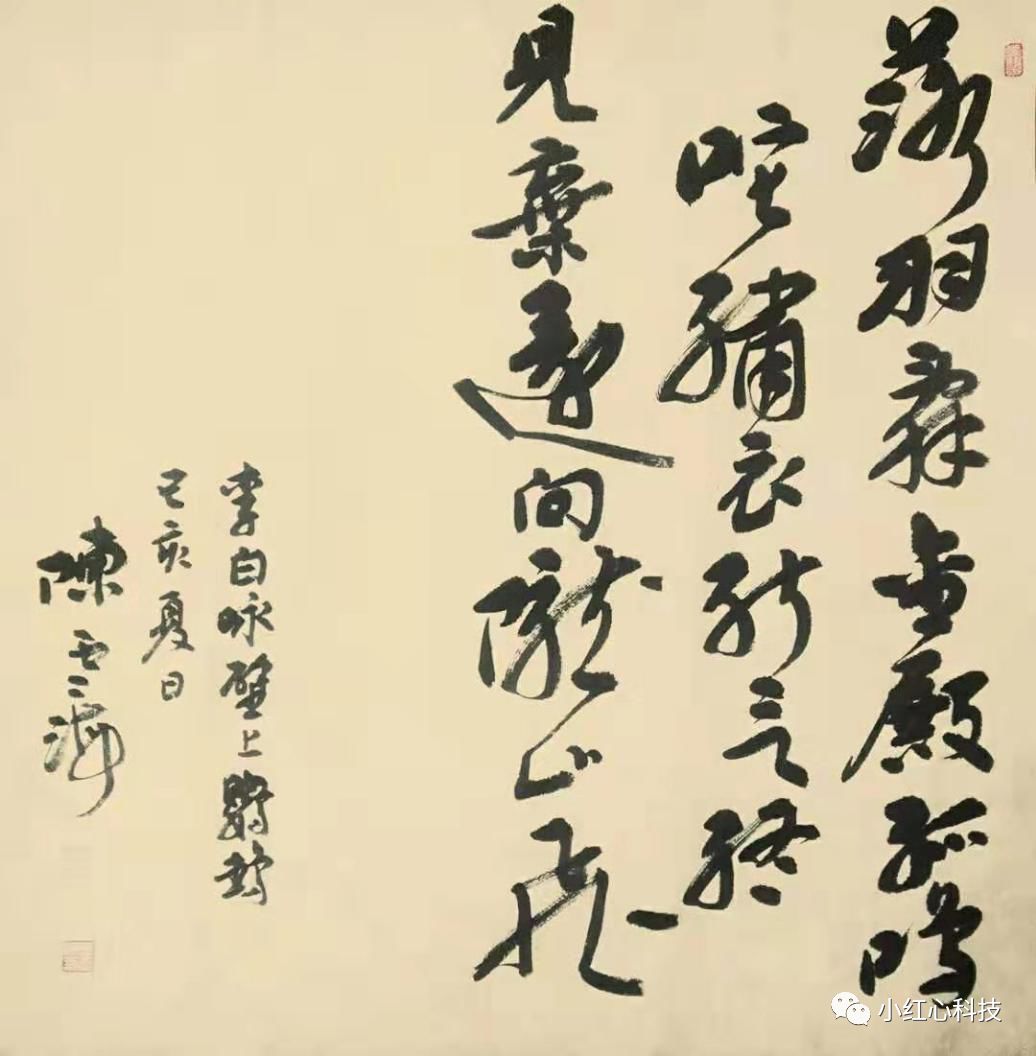 落羽辭金殿孤鳴
咤繡衣能言終
見棄還向隴山飛
李白咏壁上鸚鵡
己亥夏日
陳雲海
小红心科技